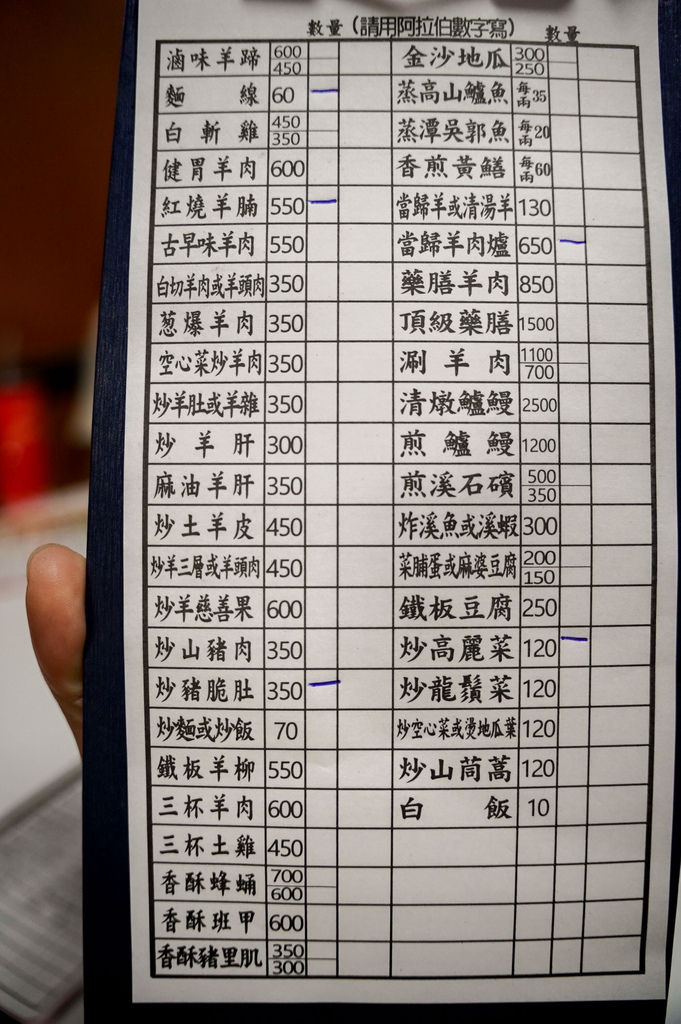 數量(請用阿拉伯數字寫) 數量
滷味羊蹄 600 450 金沙地瓜 300 250
麵線 60 蒸高山鱸魚 每兩35
白斬雞 450 350 蒸潭吳郭魚 每兩20
健胃羊肉 600 香煎黃鱔 每兩60
紅燒羊腩 550 當歸羊或清湯羊 130
古早味羊肉 550 當歸羊肉爐 650
白切羊肉或羊頭肉 350 藥膳羊肉 850
葱爆羊肉 350 頂級藥膳 1500
空心菜炒羊肉 350 涮羊肉 1100 700
炒羊肚或羊雜 350 清燉鱸鰻 2500
炒羊肝 300 煎鱸鰻 1200
麻油羊肝 350 煎溪石礦 500 350
炒土羊皮 450 炸溪魚或溪蝦 300
炒羊三層或羊頭肉 450 菜脯蛋或麻婆豆腐 200 150
炒羊慈善果 600 鐵板豆腐 250
炒山豬肉 350 炒高麗菜 120
炒豬脆肚 350 炒龍鬚菜 120
炒麵或炒飯 70 炒空心菜或燙地瓜葉 120
鐵板羊柳 550 炒山茼萵 120
三杯羊肉 600 白飯 10
三杯土雞 450
香酥蜂蛹 700 600
香酥班甲 600
香酥豬里肌 350 300